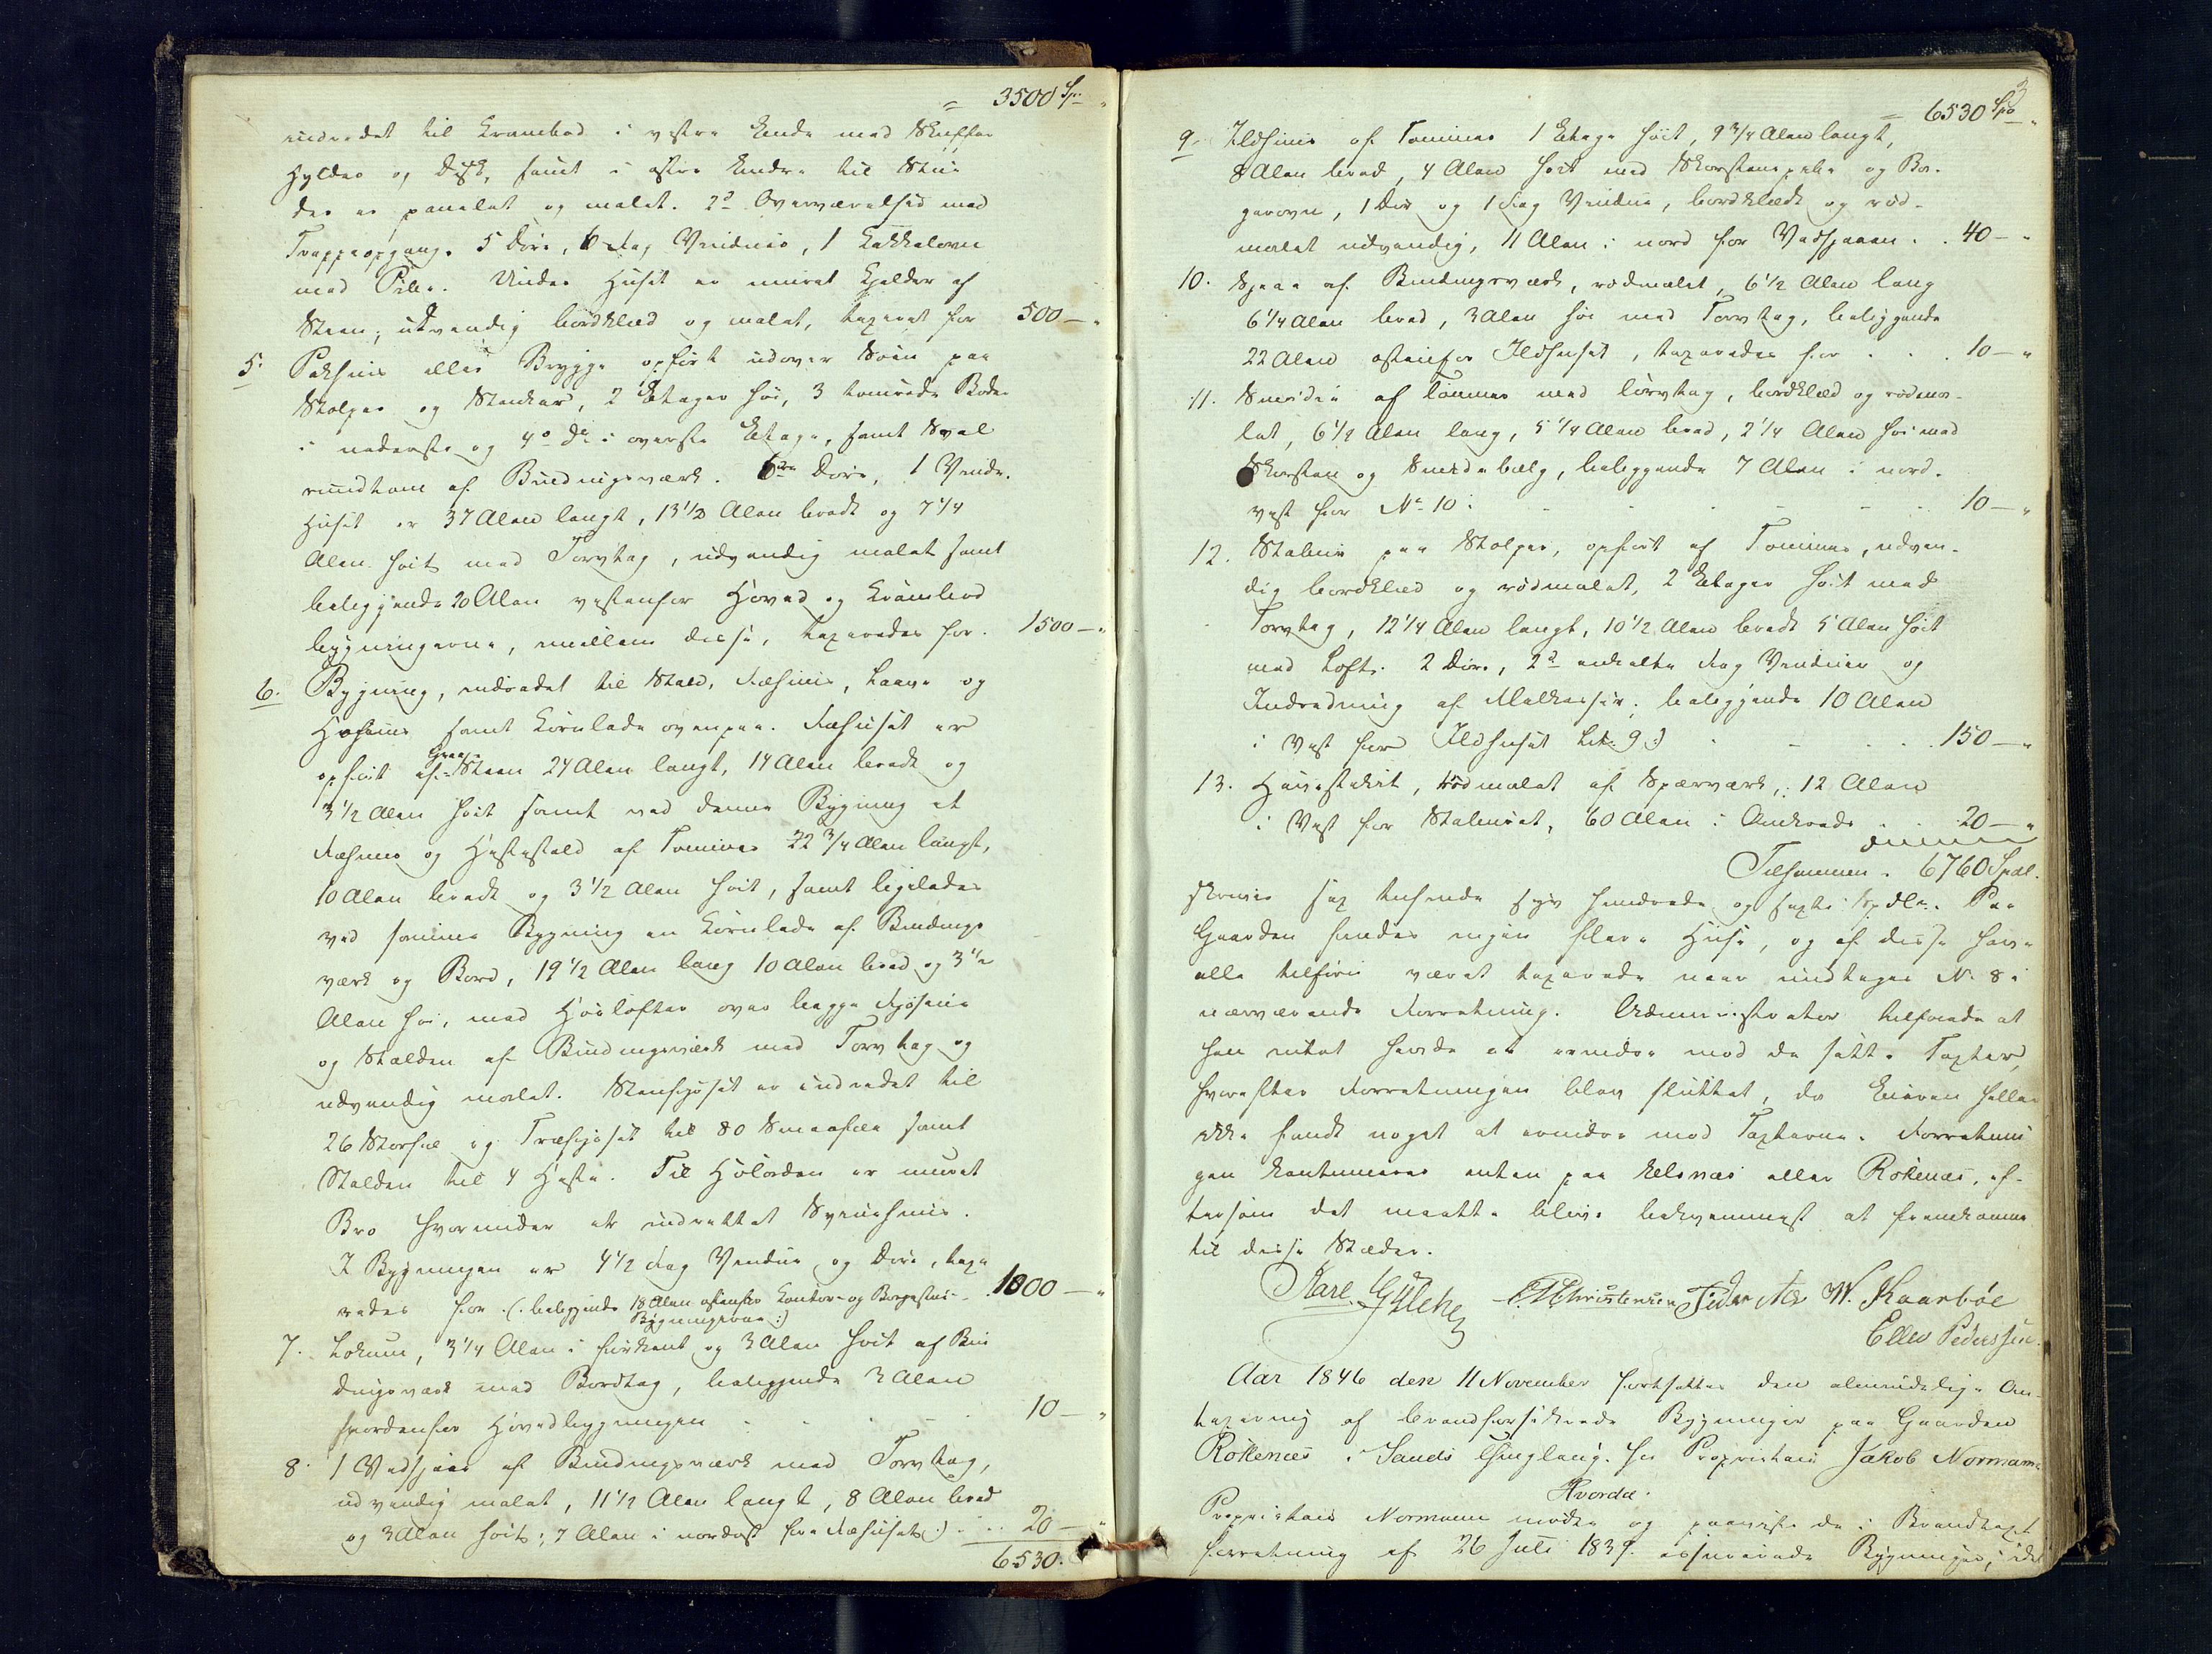 = 3500 Sp.
indredet til Krambod i vestre Ende med Skuffer
Hylder og Disk, samt i østre Ende til Stue
der er panelet og malet. 2d Overværelser med
Trappeopgang. 5 Døre, 6 Fag Vinduer, 1 Kakkelovn
med Pibe. Under Huset er muret Kjelder af
Steen, udvendig bordklæd og malet, taxeret for 500 –
5. Pakhuus eller Brygge opført udover Søen paa
Stolper og Stenkar, 2 Etager høi, 3 tømrede Boder
i nederste og 4 do i øverste Etage, samt Sval
rundtom af Bindingsværk. 6 Døre, 1 Vindu.
Huset er 37 Alen langt, 13 1/2 Alen bredt og 7 1/4
Alen høit med Torvtag, udvendig malet samt
beliggende 20 Alen vestenfor Hoved og Krambod
bygningerne, mellem disse, taxeredes for. 1500 –
6. Bygning, indredet til Stald, Fæhuus, Laave og
samt Kornlade ovenpaa. Fæhuset er
opført af Graa-Steen 24 Alen langt, 14 Alen bredt og
3 1/2 Alen høit samt ved denne Bygning et
Fæhuus og Hestestald af Tømmer 22 3/4 Alen langt,
10 Alen bredt og 3 1/2 Alen høit, samt ligeledes
ved samme Bygning en Kornlade af Bindings
værk og Bord, 19 1/2 Alen lang 10 Alen bred og 3 1/2
Alen høi, med Høilofter over begge Fjøsene
og Stalden af Bindingsværk med Torvtag og
udvendig malet. Steenfjøset er indredet til
26 Storfæ og Træfjøset til 80 Smaafæe samt
Stalden til 4 Heste. Til Høladen er muret
Bro hvorunder er indrettet Sviinehuus.
I Bygningen er 4 1/2 Fag Vinduer og Døre, taxe
redes for (: beliggende 18 Alen østenfor Kontor- og Borgestue-
Bygningerne :) 1000 –
7. Lokum, 3 1/4 Alen i Firkant og 3 Alen høit af Bin
dingsværk med Bordtag, beliggende 3 Alen
nordenfor Hovedbygningen 10 –
8. 1 Vedsjaae af Bindingsværk med Torvtag,
udvendig malet, 11 1/2 Alen langt, 8 Alen bred
og 3 Alen høit (: 7 Alen i nordost for Fæhuset :) 20 –
6530.
3
= 6530 Spd
9. Ildhuus af Tømmer 1 Etage høit, 9 3/4 Alen langt,
8 Alen bred, 4 Alen høit med Skorsteenspibe og Ba-
gerovn, 1 Dør og 1 Fag Vindue, bordklædt og rød-
malet udvendig, 11 Alen i nord for Vedsjaaen. 40 –
10. Sjaae af Bindingsværk, rødmalet, 6 1/2 Alen lang
6 1/4 Alen bred, 3 Alen høi med Torvtag, beliggende
22 Alen østenfor Ildhuset, taxeredes for 10 –
11. Smidie af Tømmer med Torvtag, bordklæd og rødma-
let, 6 1/2 Alen lang, 5 1/4 Alen bred, 2 1/4 Alen høi med
Skorsten og Smidebælg, beliggende 7 Alen i nord-
vest for No 10: 10 –
12. Stabuur paa Stolper, opført af Tømmer, udven-
dig bordklæd og rødmalet, 2 Etager høit med
Torvtag, 12 1/4 Alen langt, 10 1/2 Alen bredt 5 Alen høit
med Loft. 2 Døre, 2 enkelte Fag Vinduer og
Indredning af Melkasser; beliggende 10 Alen
i Vest for Ildhuset Litr: 9:) 150 –
13. Havestakit, rødmalet af Spærværk, 12 Alen
i Vest for Staburet, 60 Alen i Qvadrat 20 –
Tilsammen. 6760 Spdl.
skriver sex tusende syv hundrede og sexti Spdlr. Paa
Gaarden findes ingen flere Huse, og af disse have
alle tilforn været taxerede naar undtages No 8 i
nærværende Forretning. Administrator tilførte at
han intet havde at erindre mod de satte Taxter,
hvorefter Forretningen blev sluttet, da Eieren heller
ikke fandt noget at erindre mod Taxterne. Forretnin
gen kontinueres enten paa Elsnæs eller Rokenæs, ef-
tersom det maatte blive beqvemmest at fremkomme
til disse Stæder.
Karl Gylche C. Christensen Peder And W. Kaarbøe
Elles Pedersen
Aar 1846 den 11 November fortsattes den almindelige Om-
taxering af brandforsikrede Bygninger paa Gaarden
Rokenæs i Sands Thinglaug. for Proprietair Jakob Normann.
Hvorda:
Proprietair Normann mødte og paaviste de i Brandtaxt
forretning af 26 Juli 1839 assurerede Bygninger, idet